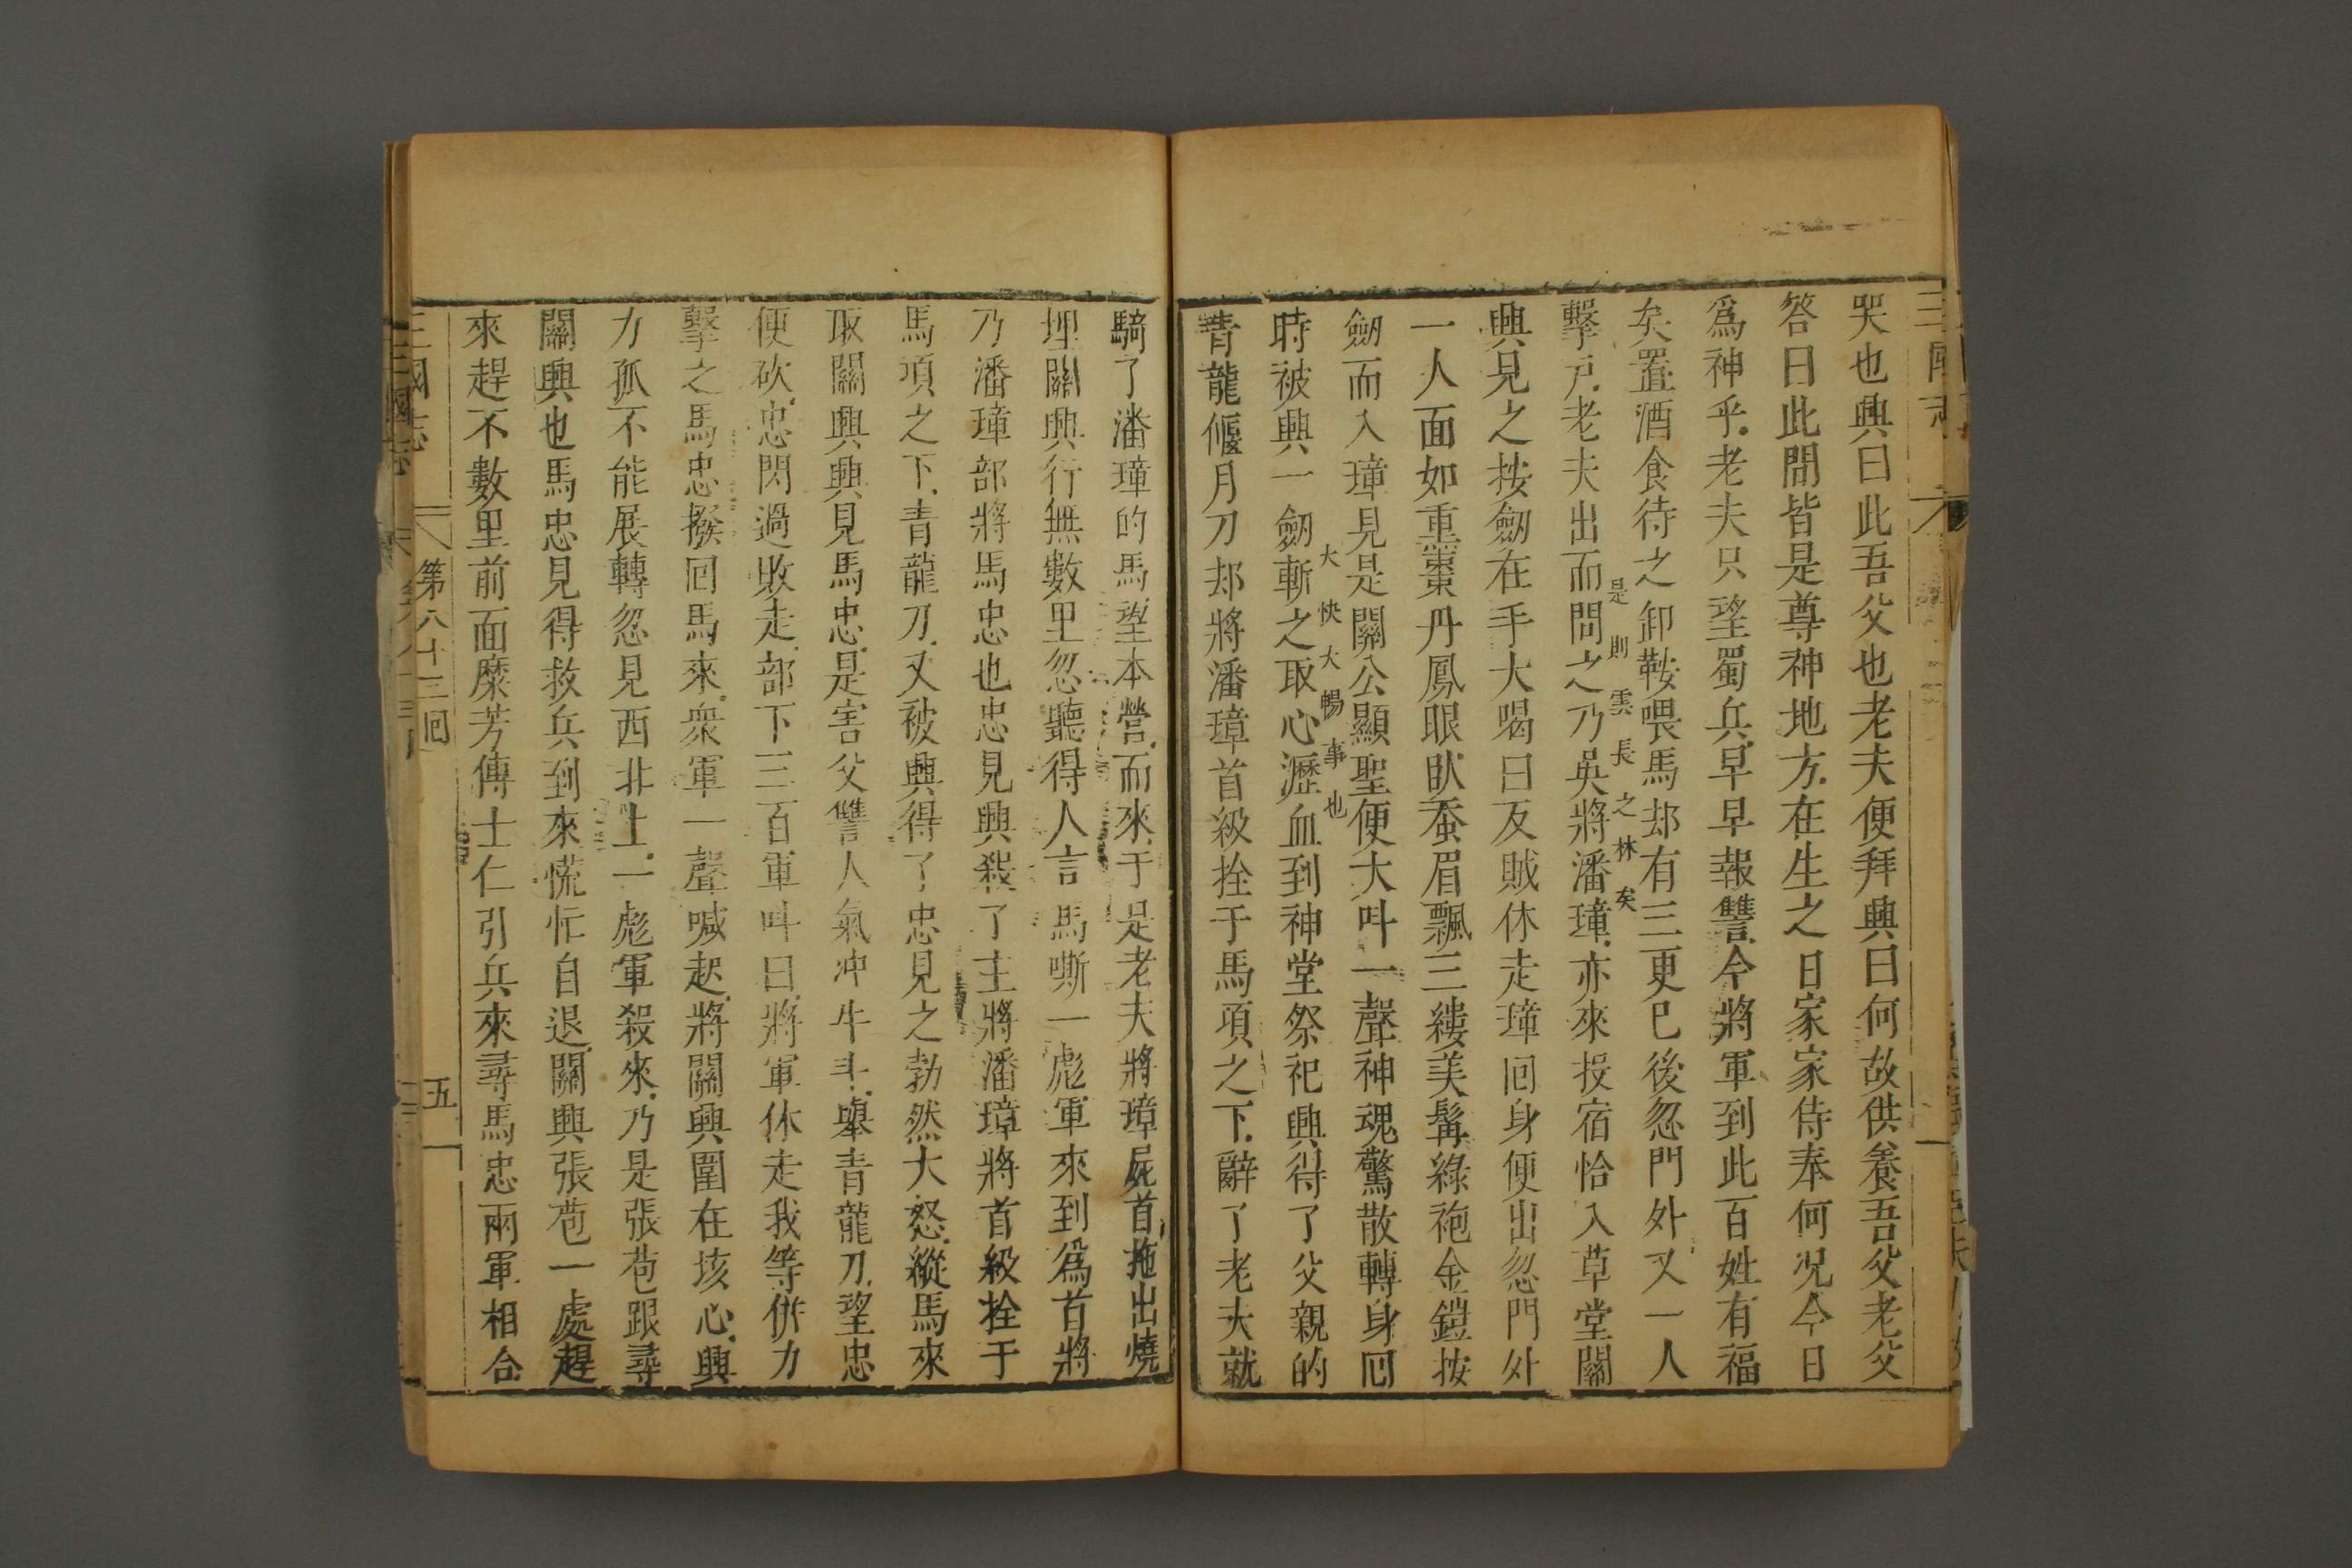 哭也興曰此吾父也老夫便拜興曰何故供養吾父老父
答曰此間皆是尊神地方在生之日家家侍奉何况今日
爲神乎老夫只望蜀兵早早報讐今將軍到此百姓有福
矣置酒食待之卸鞍喂馬却有三更已後忽門外又一人
擊戸老夫出而問之乃吳將潘璋亦來投宿恰入草堂關
是則雲長之林矣
興見之按劒在手大喝曰反賊休走璋回身便出忽門外
一人面如重棗丹鳳眼臥蚕眉飄三縷美髯綠袍金鎧按
劒而入璋見是關公顯聖便大呌一聲神魂驚散轉身囘
大快大暢事也
時被興一劒斬之取心瀝血到神堂祭祀興得了父親的
青龍偃月刀却將潘璋首級拴于馬項之下辭了老夫就
騎了潘璋的馬望本營而來于是老夫將璋屍首拖出燒
埋關興行無數里忽聽得人言馬嘶一彪軍來到爲首將
乃潘璋部將馬忠也忠見興殺了主將潘璋將首級拴于
馬項之下青龍刀又被興得了忠見之勃然大怒縱馬來
取關興興見馬忠是害父讐人氣冲牛斗舉青龍刀望忠
便砍忠閃過敗走部下三百軍呌曰將軍休走我等併力
擊之馬忠撥回馬來衆軍一聲喊起將關興圍在垓心興
力孤不能展轉忽見西北上一彪軍殺來乃是張苞跟尋
關興也馬忠見得救兵到來慌忙自退關興張苞一處趕
來趕不數里前面糜芳傅士仁引兵來尋馬忠兩軍相合
三國志
第八十三回
五